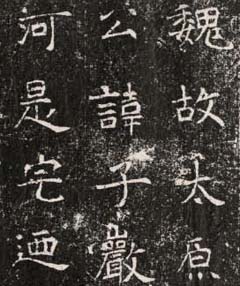 魏故太原
公諱子巖
河是宅迺